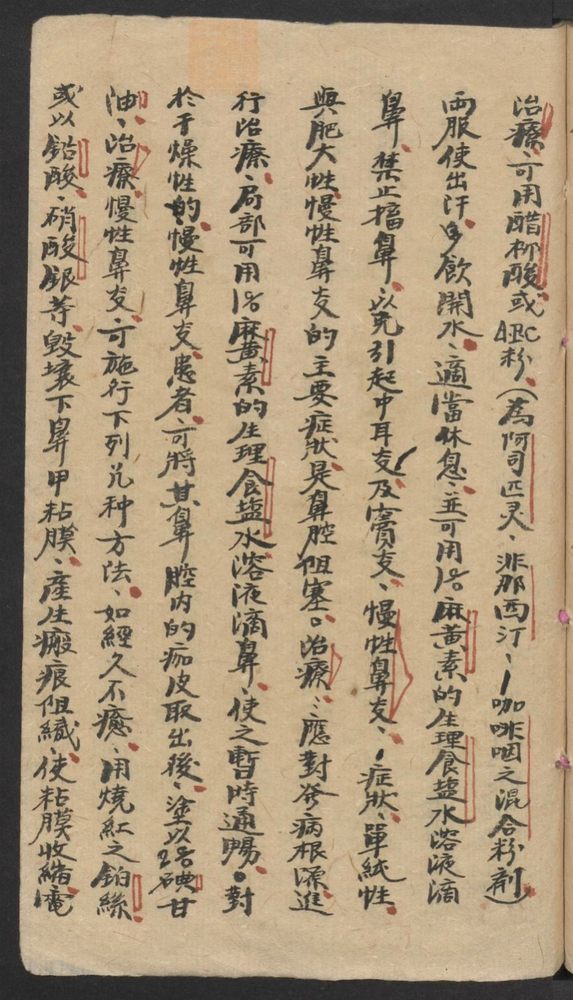 治療、可用醋柳酸或ABC粉（為阿司匹灵、非那西汀、咖啡因之混合粉剤）
両服使出汗、多飲開水、適當休息、並可用1%麻黃素的生理食塩水溶液滴
鼻、禁止擤鼻、以免引起中耳炎及竇炎、慢性鼻炎、症狀、單純性
與肥大性慢性鼻炎的主要症狀是鼻腔阻塞。治療：應對於病根源進
行治療、局部可用1%麻黃素的生理食塩水溶液滴鼻、使之暫時通暢。對
於干燥性的慢性鼻炎患者、可將其鼻腔内的痂皮取出後、塗以2%碘甘
油、治療慢性鼻炎、可施行下列几种方法、如經久不癒、用燒紅之鉑絲
或以鉻酸、硝酸銀等、毀壞下鼻甲粘膜、產生瘢痕阻織、使粘膜收縮